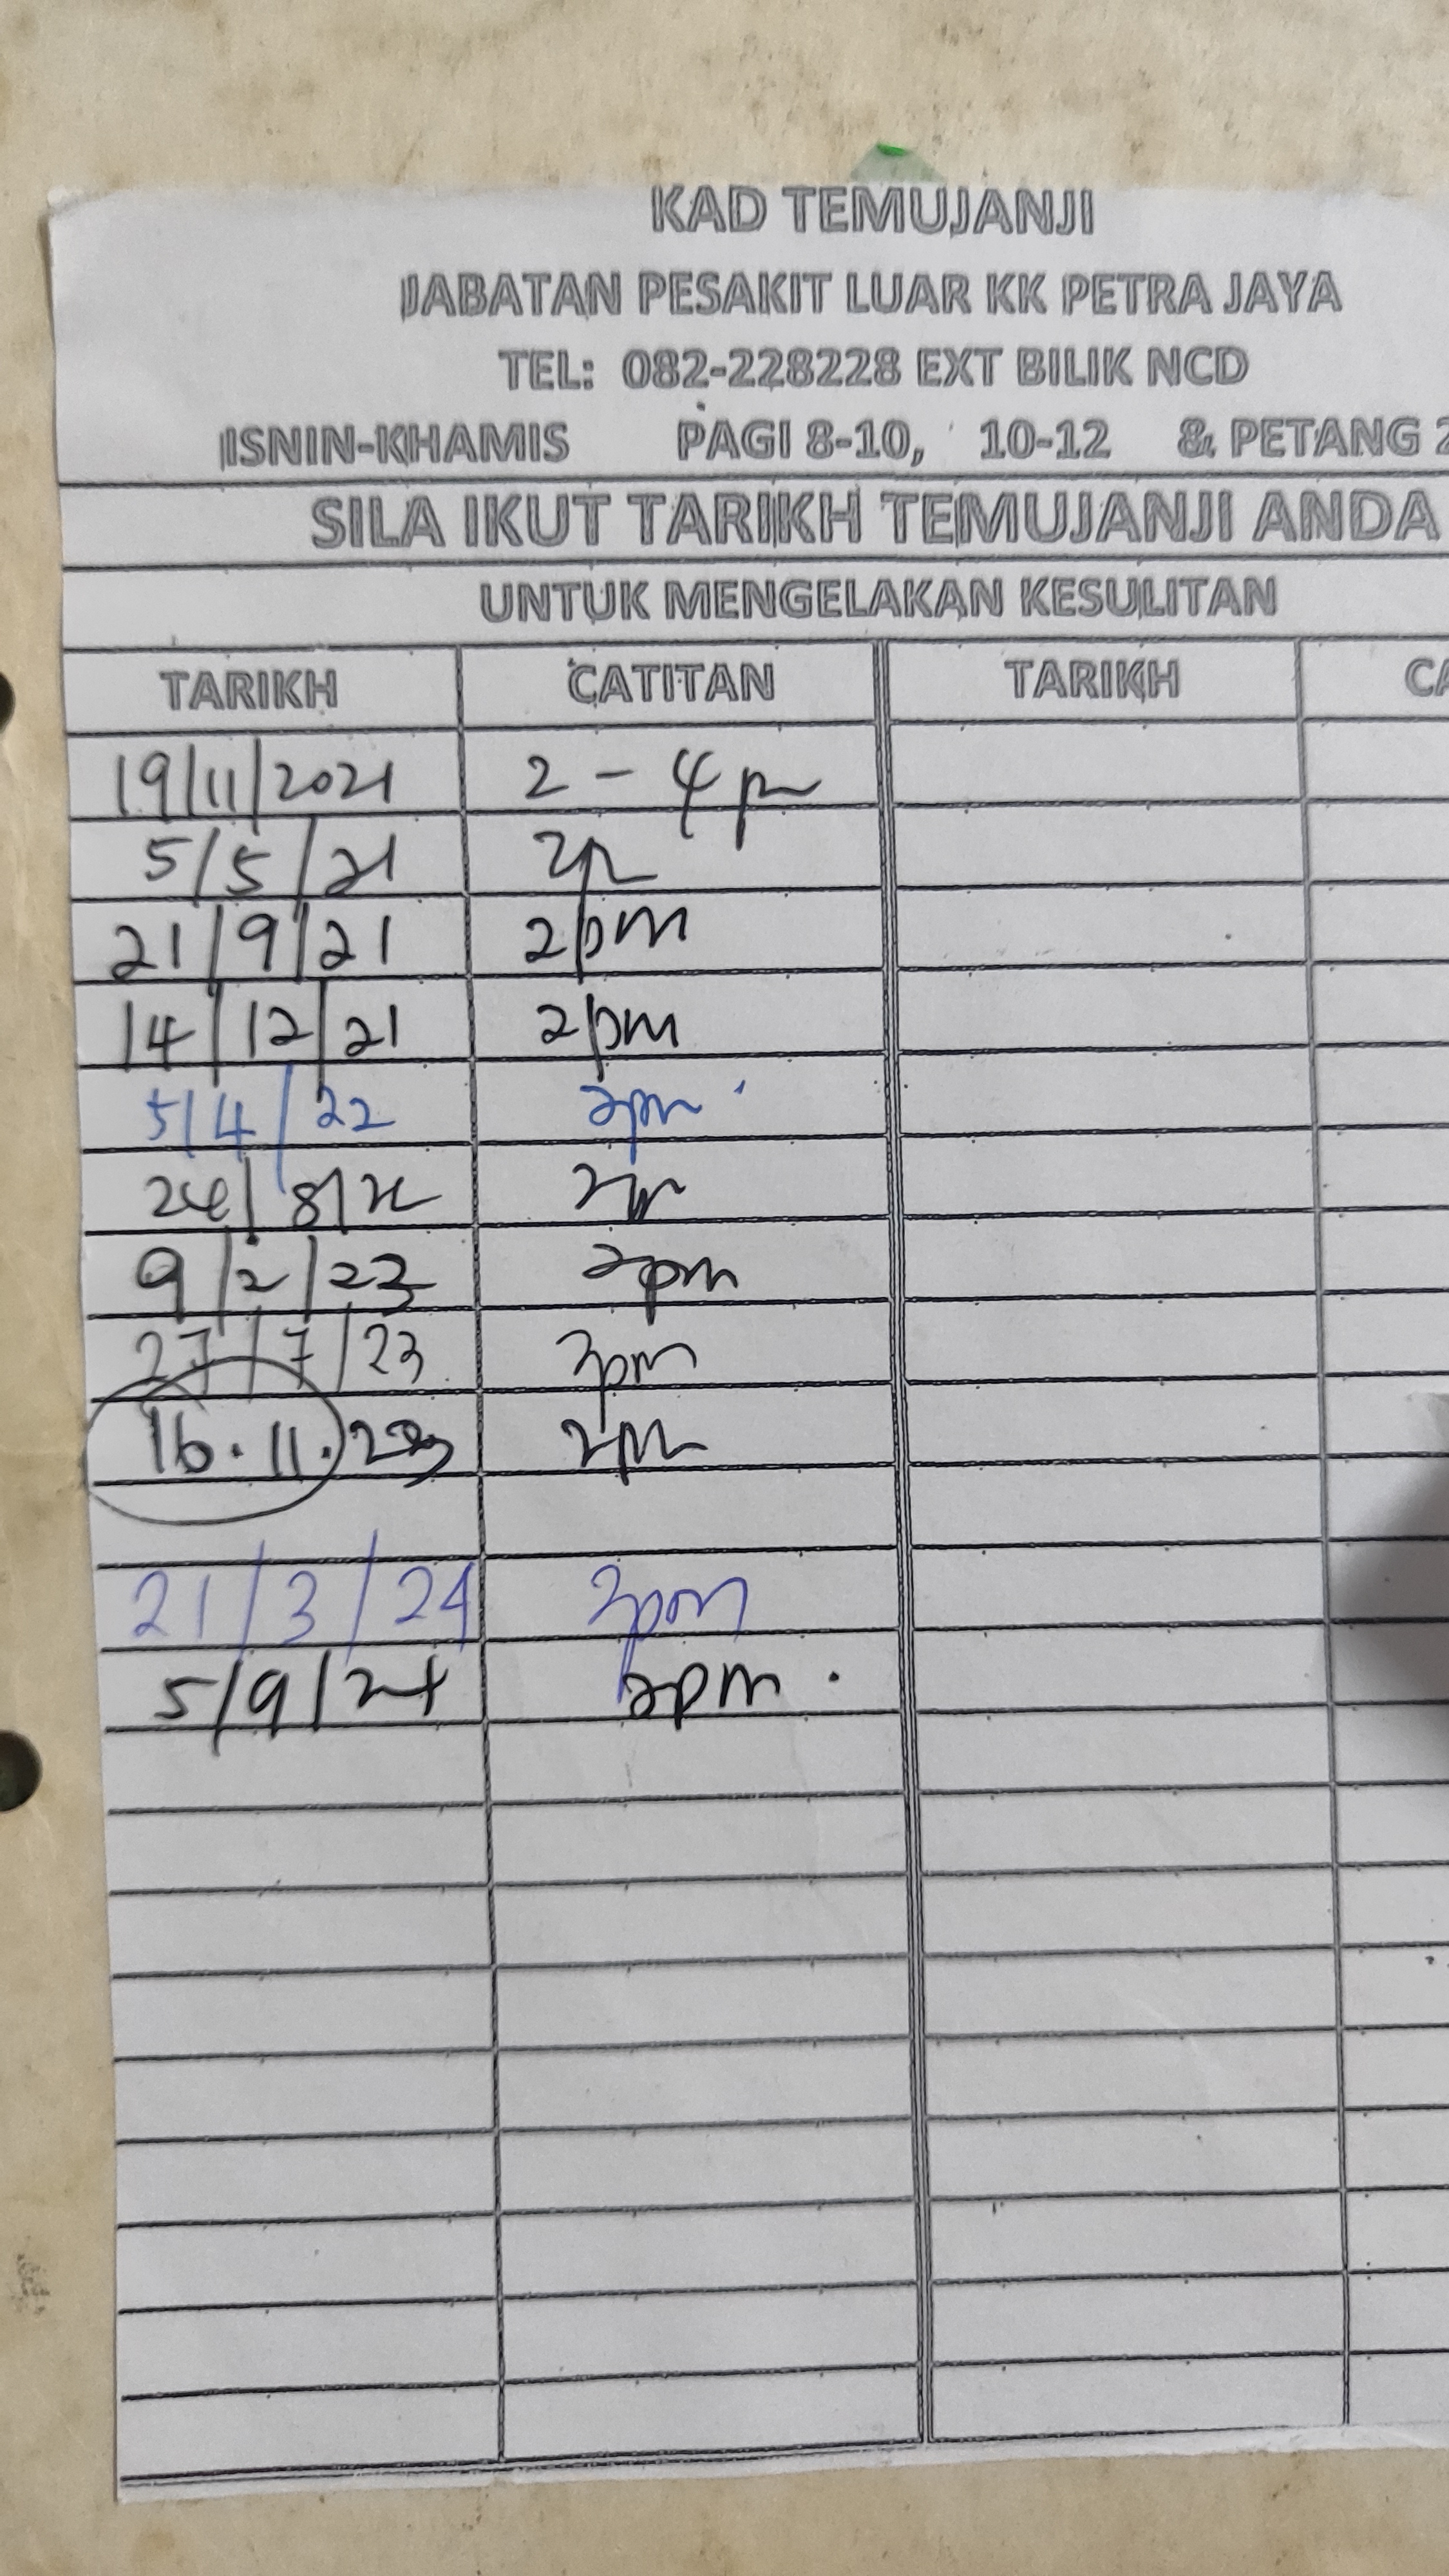 KAD TEMUJANJI
JABATAN PESAKIT LUAR KK PETRA JAYA
TEL: 082-228228 EXT BILIK NCD
ISNIN-KHAMIS PAGI 8-10, 10-12 & PETANG 2
SILA IKUT TARIKH TEMUJANJI ANDA
UNTUK MENGELAKAN KESULITAN
TARIKH CATITAN TARIKH CA
19/11/2021 2 - 4 pm
5/5/21 2p
21/9/21 2pm
14/12/21 2pm
5/4/22 2pm
24/8/22 2p
9/2/23 2pm
27/7/23 2pm
16.11.23 2pm
21/3/24 2pm
5/9/24 2pm.